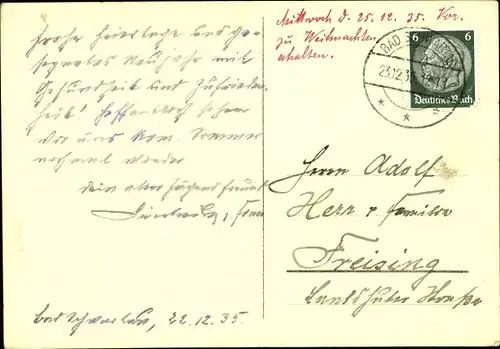 Frohe Feiertage und ge-
segnetes Neujahr mit
Gesundheit und Zufrieden-
heit! Hoffentlich sehen
wir uns kom. Sommer
nochmal wieder
Dein alter Jugendfreund
u. Frau
Bad Schwartau, 22.12.35.
Mittwoch d. 25.12.35. Vor.
zu Weihnachten
erhalten.
BAD SCHWARTAU
23.12.3
6 6
Deutsches Reich
Herrn Adolf
Herr u Familie
Freising
Landshuter Straße